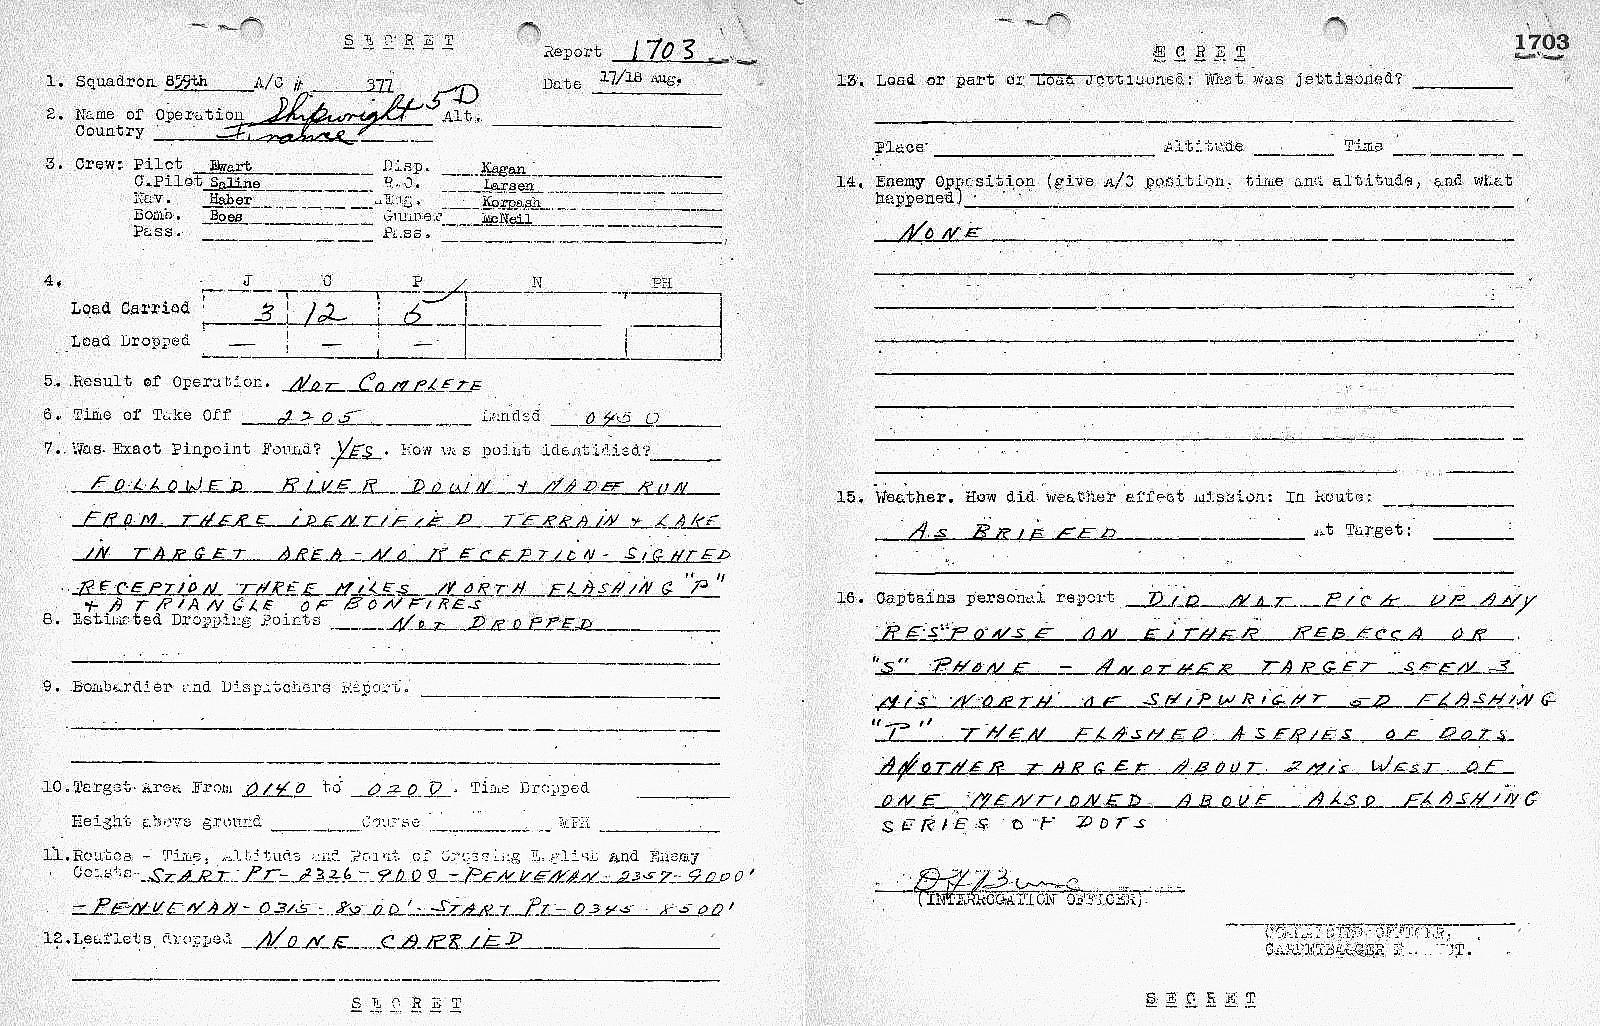 SECRET
Report 1703
1. Squadron 859th A/C # 377 Date 17/18 Aug.
2. Name of Operation Shipwright 5D Alt.
Country France
3. Crew: Pilot Ewart Disp. Kagan
C.Pilot Saline R.O. Larsen
Nav. Haber Eng. Korpash
Bomb. Boes Gunner McNeil
Pass. Pass.
4. J C P N PH
Load Carried 3 12 6
Load Dropped — — —
5. Result of Operation. NOT COMPLETE
6. Time of Take Off 2205 Landed 0450
7. Was Exact Pinpoint Found? YES. How was point identidied?
FOLLOWED RIVER DOWN + MADE RUN
FROM THERE IDENTIFIED TERRAIN + LAKE
IN TARGET AREA - NO RECEPTION - SIGHTED
RECEPTION THREE MILES NORTH FLASHING "P"
+ A TRIANGLE OF BONFIRES
8. Estimated Dropping Points NOT DROPPED
9. Bombardier and Dispatchers Report.
10. Target Area From 0140 to 0200. Time Dropped
Height above ground Course MPH
11. Routes - Time, Altitude and Point of Crossing English And Enemy
Coasts- START PT - 2326 - 9000 - PENVENAN - 2357 - 9000'
- PENVENAN - 0315 - 8500' - START PT - 0345 - 8500'
12. Leaflets dropped NONE CARRIED
SECRET
ECRET
1703
13. Load or part or Load Jettisoned: What was jettisoned?
Place Altitude Time
14. Enemy Opposition (give A/C position, time and altitude, and what
happened)
NONE
15. Weather. How did weather affect mission: In Route:
AS BRIEFED At Target:
16. Captains personal report DID NOT PICK UP ANY
RESPONSE ON EITHER REBECCA OR
"S" PHONE - ANOTHER TARGET SEEN 3
MIS NORTH OF SHIPWRIGHT 5D FLASHING
"P" THEN FLASHED A SERIES OF DOTS
ANOTHER TARGET ABOUT 2 MIS WEST OF
ONE MENTIONED ABOVE ALSO FLASHING
SERIES OF DOTS
(INTERROGATION OFFICER)
COMMANDING OFFICER,
CARPETBAGGER
SECRET